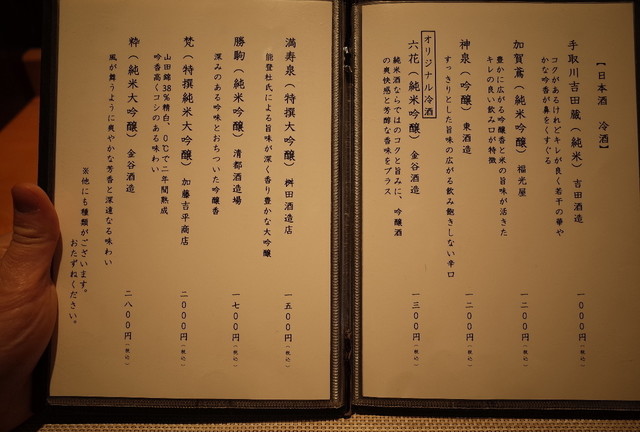 【日本酒　冷酒】
手取川吉田蔵（純米）吉田酒造　一〇〇〇円（税込）
コクがあるけれどキレが良く若干の華や
かな吟香が鼻をくすぐる
加賀鳶（純米吟醸）福光屋　一二〇〇円（税込）
豊かに広がる吟醸香と米の旨味が活きた
キレの良い飲み口が特徴
神泉（吟醸）東酒造　一二〇〇円（税込）
すっきりとした旨味の広がる飲み飽きしない辛口
オリジナル冷酒
六花（純米吟醸）金谷酒造　一三〇〇円（税込）
純米酒ならではのコクと旨みに、吟醸酒
の爽快感と芳醇な香味をプラス
満寿泉（特撰大吟醸）桝田酒造店　一五〇〇円（税込）
能登杜氏による旨味が深く香り豊かな大吟醸
勝駒（純米吟醸）清都酒造場　一七〇〇円（税込）
深みのある吟味とおちついた吟醸香
梵（特撰純米大吟醸）加藤吉平商店　二〇〇〇円（税込）
山田錦38％精白、0℃で二年間熟成
吟香高くコシのある味わい
粋（純米大吟醸）金谷酒造　二八〇〇円（税込）
風が舞うように爽やかな芳香と深遠なる味わい
※他にも種類がございます。
おたずねください。